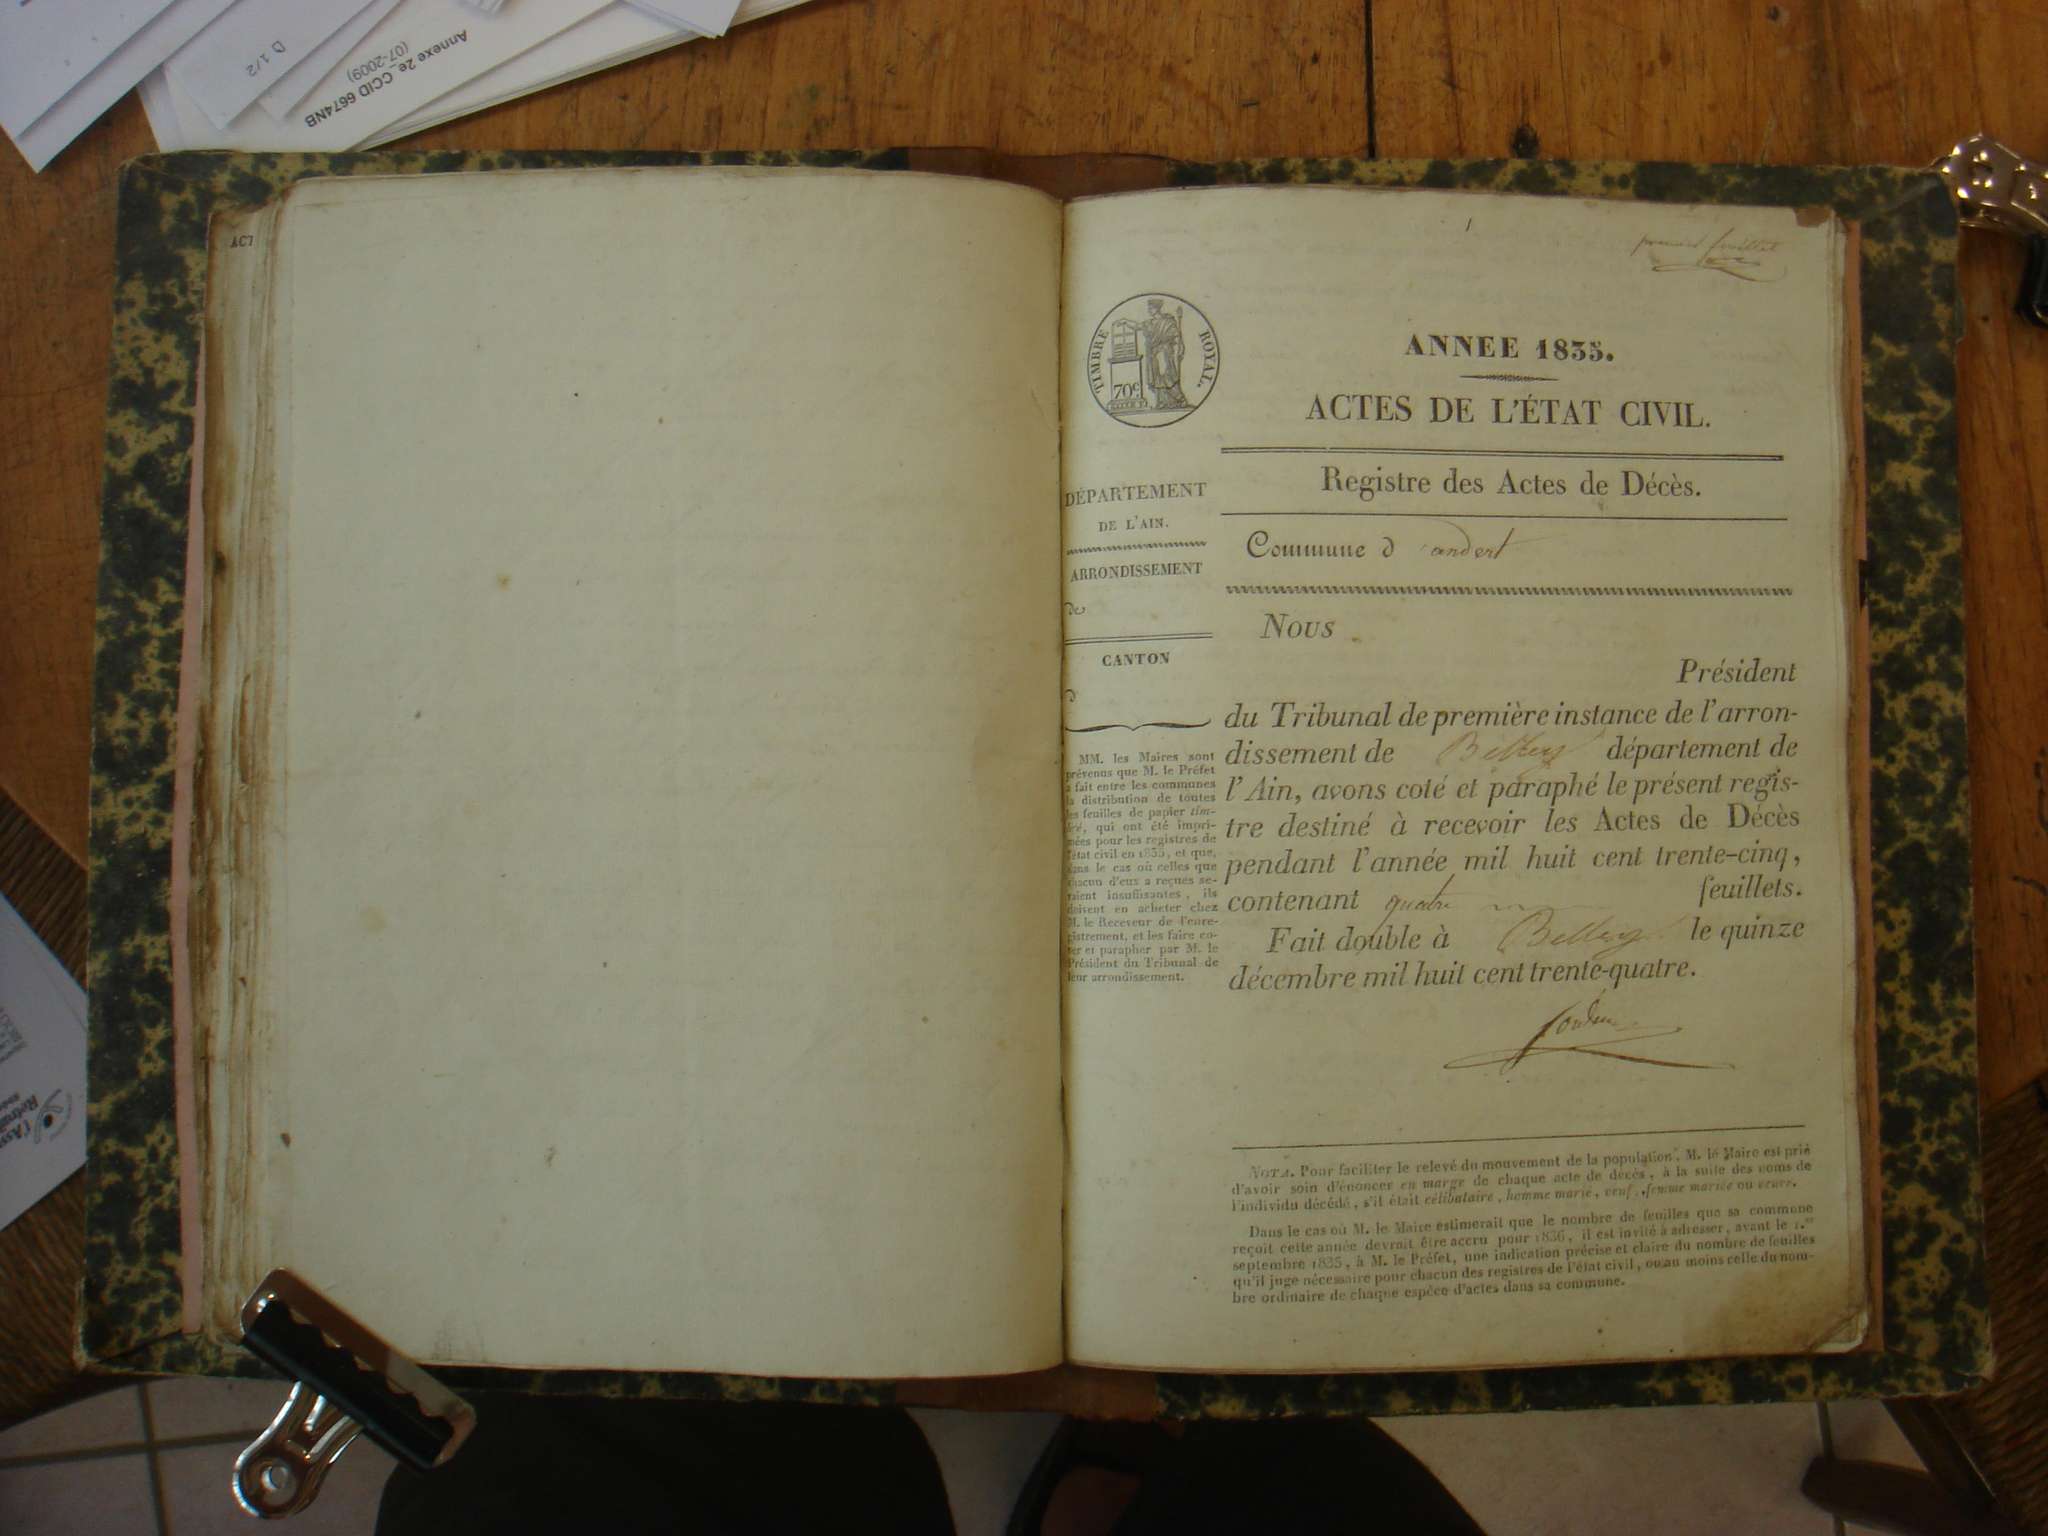 D 1/2
Annexe 2e_CCID 6674NB
(07-2009)
AC
1
premier feuillet
TIMBRE ROYAL.
70c
ANNEE 1835.
ACTES DE L'ÉTAT CIVIL.
Registre des Actes de Décès.
Commune d andert
DÉPARTEMENT
DE L'AIN.
ARRONDISSEMENT
de
CANTON
d
MM. les Maires sont
prévenus que M. le Préfet
a fait entre les communes
la distribution de toutes
les feuilles de papier tim-
bré, qui ont été impri-
mées pour les registres de
l'état civil en 1835, et que,
dans le cas où celles que
chacun d'eux a reçues se-
raient insuffisantes, ils
doivent en acheter chez
M. le Receveur de l'enre-
gistrement, et les faire co-
ter et parapher par M. le
Président du Tribunal de
leur arrondissement.
Nous
Président
du Tribunal de première instance de l'arron-
dissement de Belley département de
l'Ain, avons coté et paraphé le présent regis-
tre destiné à recevoir les Actes de Décès
pendant l'année mil huit cent trente-cinq,
contenant quatre feuillets.
Fait double à Belley le quinze
décembre mil huit cent trente-quatre.
NOTA. Pour faciliter le relevé du mouvement de la population, M. le Maire est prié
d'avoir soin d'énoncer en marge de chaque acte de décès, à la suite des noms de
l'individu décédé, s'il était célibataire, homme marié, veuf, femme mariée ou veuve.
Dans le cas où M. le Maire estimerait que le nombre de feuilles que sa commune
reçoit cette année devrait être accru pour 1836, il est invité à adresser, avant le 1.er
septembre 1835, à M. le Préfet, une indication précise et claire du nombre de feuilles
qu'il juge nécessaire pour chacun des registres de l'état civil, ou au moins celle du nom-
bre ordinaire de chaque espèce d'actes dans sa commune.